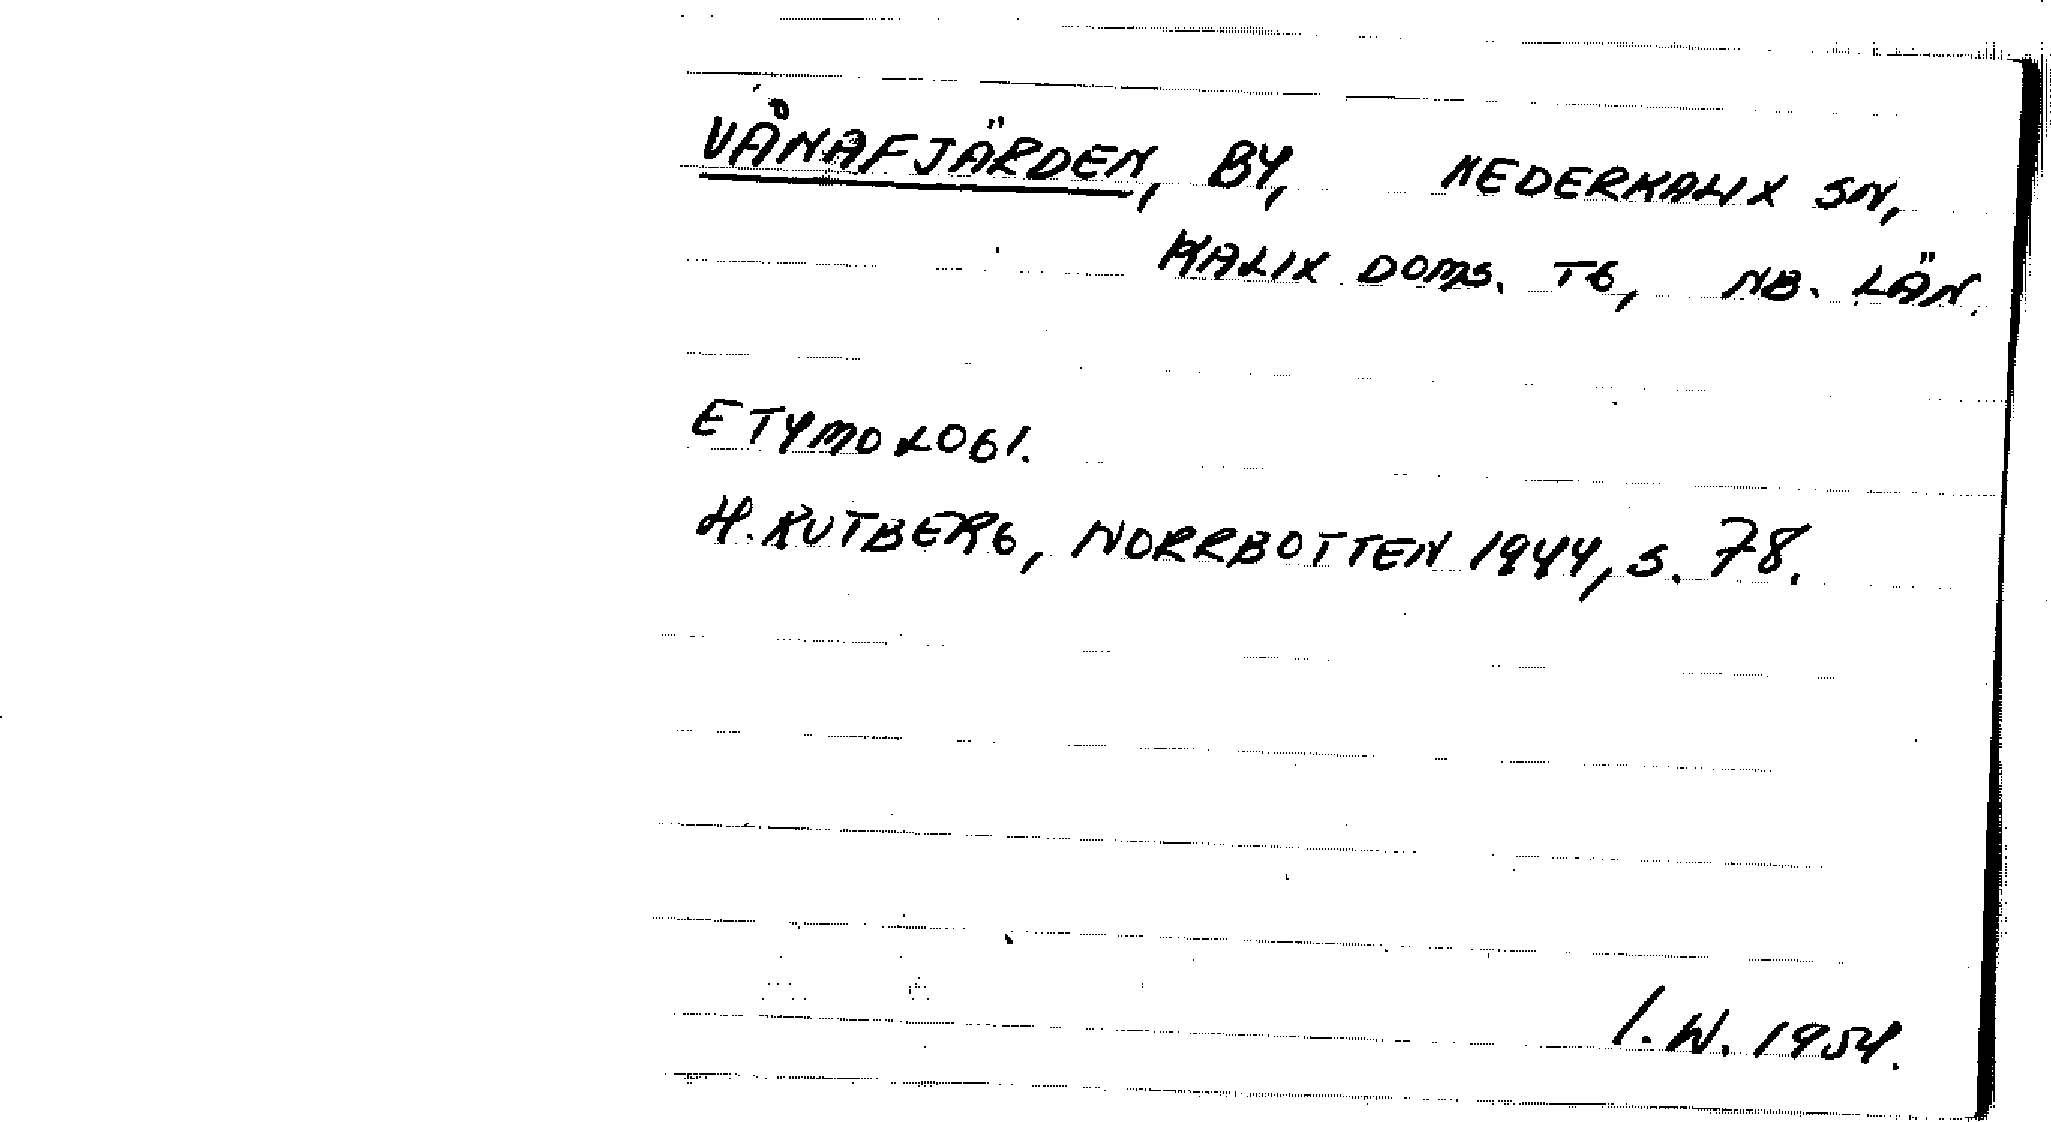 VÅNAFJÄRDEN, BY, NEDERKALIX SN,
KALIX DOMS. TG, NB. LÄN.
ETYMOLOGI.
H. RUTBERG, NORRBOTTEN 1944, S. 78.
I. W. 1954.